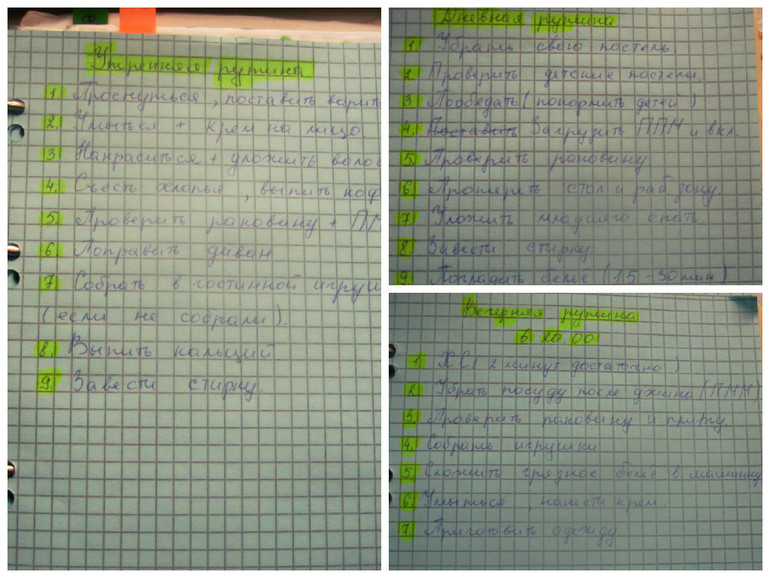 Утренняя рутина
1. Проснуться, поставить варить
2. Умыться + крем на лицо.
3 Накраситься + уложить воло
4. Съесть хлопья, выпить коф
5 Проверить раковину + ПМ
6 Поправить диван
7 Собрать в гостинной игруш
(если не собрали).
8. Выпить кальций
9. Завести стирку.
Дневная рутина
1 Убрать свою постель.
2 Проверить детские постели.
3 Пообедать (покормить детей)
4. Поставить Загрузить ПММ и вкл.
5 Проверить раковину
6 Протереть стол и раб зону.
7 Уложить младшего спать.
8 Завести стирку
9 Погладить белье (15-30 мин)
Вечерняя рутина
В 20.00
1 ХС (2 минут достаточно)
2 Убрать посуду после ужина (ПММ)
3. Проверить раковину и плиту.
4. Собрать игрушки
5. Сложить грязное белье в машинку
6 Умыться, нанести крем
7 Приготовить одежду.